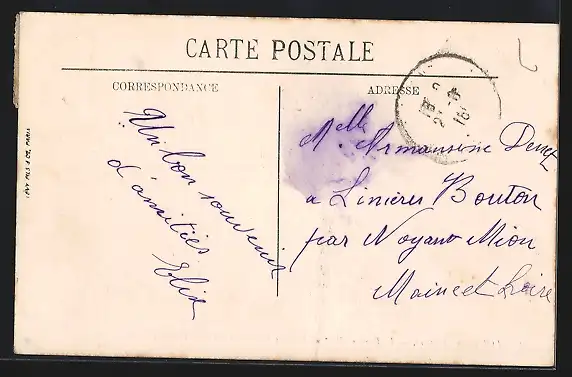 CARTE POSTALE
CORRESPONDANCE
ADRESSE
Un bon souvenir
d'amitiés
Elise
Melle Armansine
à Linières Bouton
par Noyant Mion
Maine et Loire
LÉVY FILS & CIE, PARIS